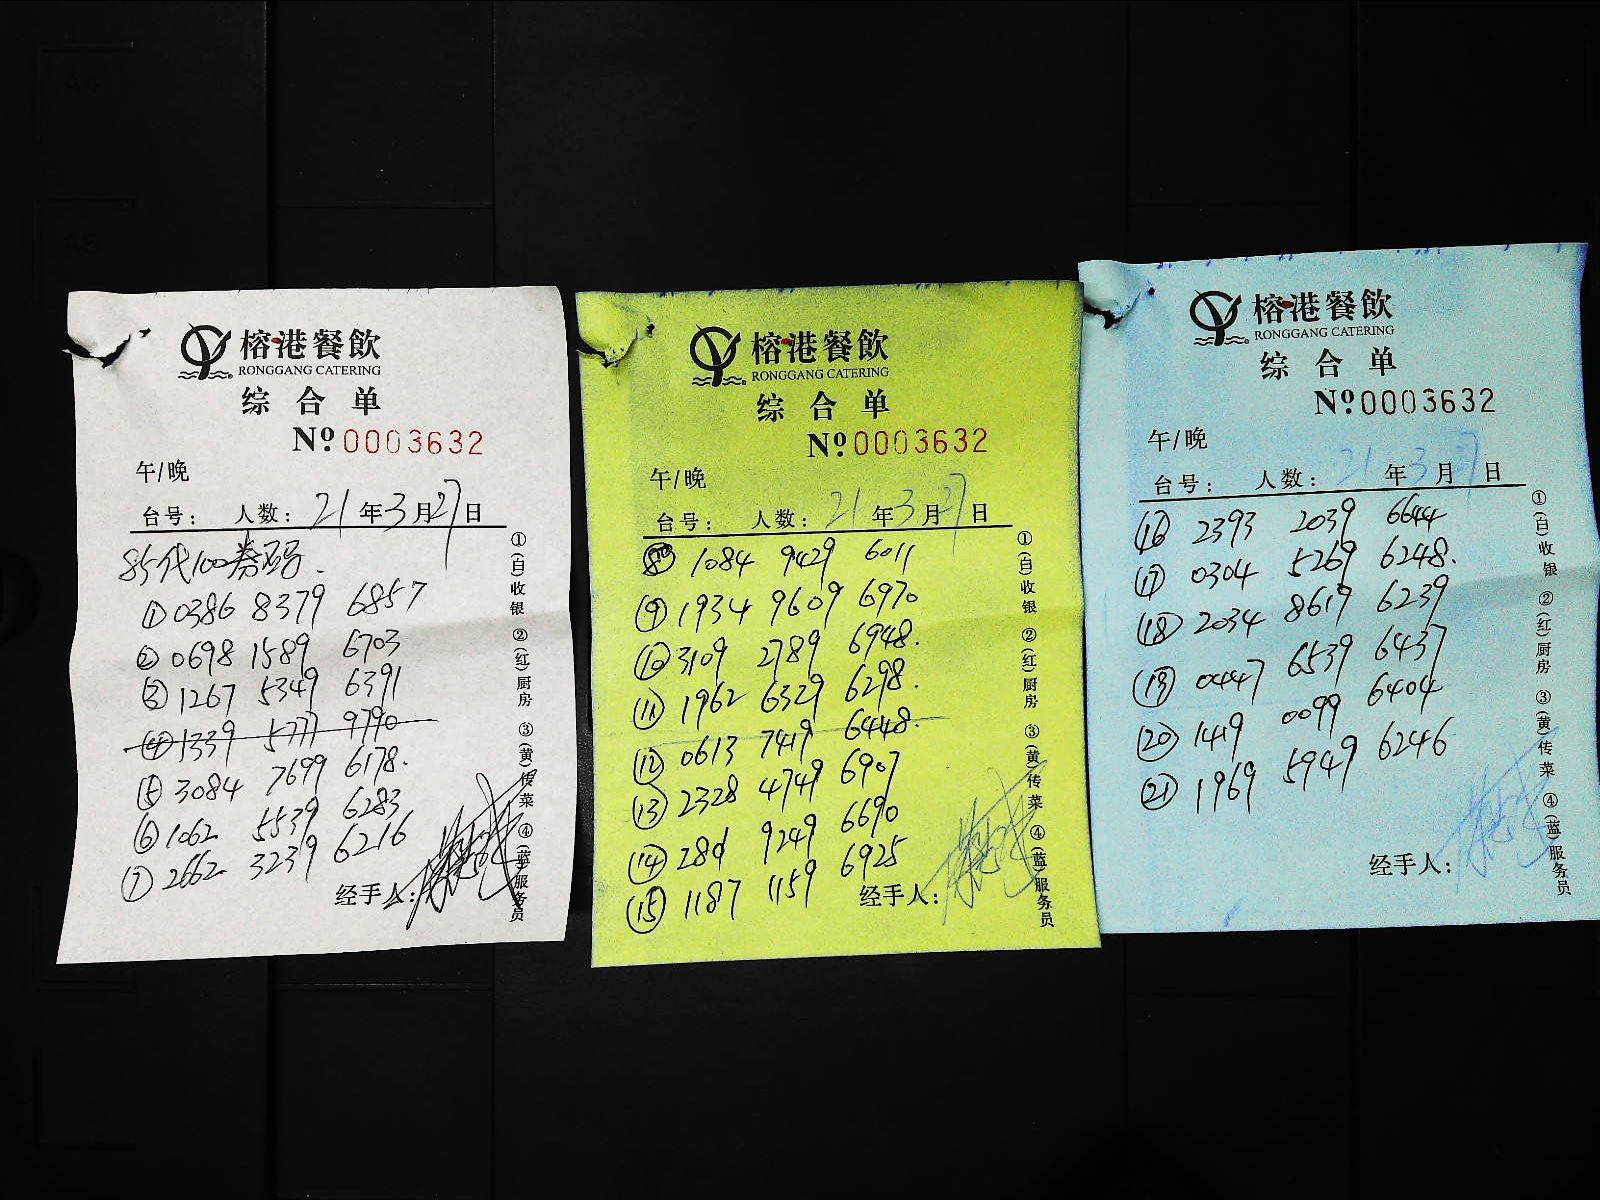 榕港餐飲
RONGGANG CATERING
综合单
№0003632
午/晚
台号： 人数： 21年3月27日
85代100券码.
①0386 8379 6857
②0698 1589 6703
③1267 5349 6391
④1339 5777 9790
⑤3084 7699 6178.
⑥1062 5539 6283
⑦2662 3239 6216
经手人：
①(白)收银 ②(红)厨房 ③(黄)传菜 ④(蓝)服务员
榕港餐飲
RONGGANG CATERING
综合单
№0003632
午/晚
台号： 人数： 21年3月27日
⑧ 1084 9429 6011
⑨ 1934 9609 6970
⑩ 3109 2789 6948.
⑪ 1962 6329 6298.
⑫ 0613 7419 6448.
⑬ 2328 4749 6907
⑭ 9249 6690
⑮ 1187 1159 6925
经手人：
①(白)收银 ②(红)厨房 ③(黄)传菜 ④(蓝)服务员
榕港餐飲
RONGGANG CATERING
综合单
№0003632
午/晚
台号： 人数： 21年3月27日
⑯ 2393 2039 6644
⑰ 0304 5269 6248.
⑱ 2034 8619 6239
⑲ 0447 6539 6437
⑳ 1419 0099 6404
㉑ 1969 5949 6246
经手人：
①(白)收银 ②(红)厨房 ③(黄)传菜 ④(蓝)服务员